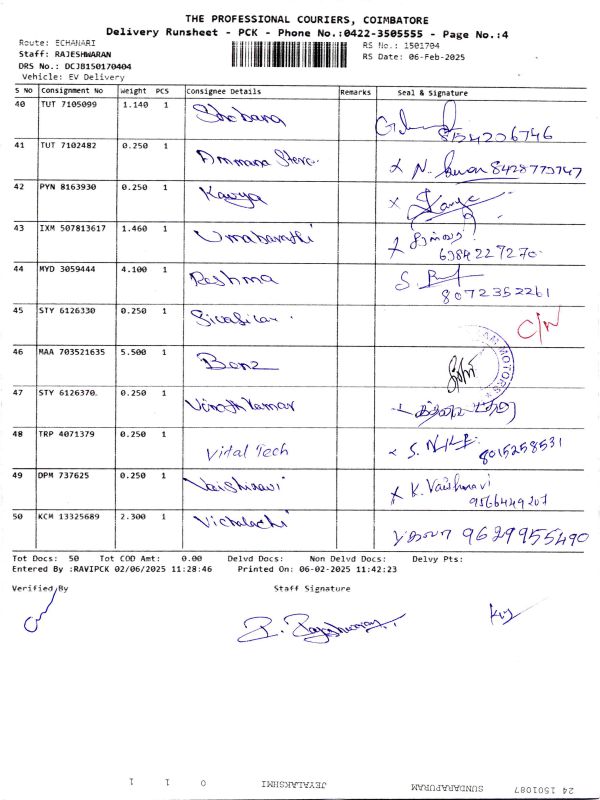 THE PROFESSIONAL COURIERS, COIMBATORE
Delivery Runsheet - PCK - Phone No.:0422-3505555 - Page No.:4
Route: ECHANARI RS No.: 1501704
Staff: RAJESHWARAN RS Date: 06-Feb-2025
DRS No.: DCJB150170404
Vehicle: EV Delivery
S No Consignment No Weight PCS Consignee Details Remarks Seal & Signature
40 TUT 7105099 1.140 1 Shobana 8754206746
41 TUT 7102482 0.250 1 Ammana N. 8428773747
42 PYN 8163930 0.250 1 Kavya
43 IXM 507813617 1.460 1 Umabarathi 6384227270
44 MYD 3059444 4.100 1 Reshma S. 8072352261
45 STY 6126330 0.250 1 C/N
46 MAA 703521635 5.500 1 MOTORS
47 STY 6126370 0.250 1 Vinothkumar
48 TRP 4071379 0.250 1 Vital Tech S. 8015258531
49 DPM 737625 0.250 1 Vaishnavi K. Vaishnavi 9566449207
50 KCM 13325689 2.300 1 9629955490
Tot Docs: 50 Tot COD Amt: 0.00 Delvd Docs: Non Delvd Docs: Delvy Pts:
Entered By :RAVIPCK 02/06/2025 11:28:46 Printed On: 06-02-2025 11:42:23
Verified By Staff Signature
P. Rajeshwaran
24 1501087 SUNDARAPURAM JEYALAKSHMI 0 1 1